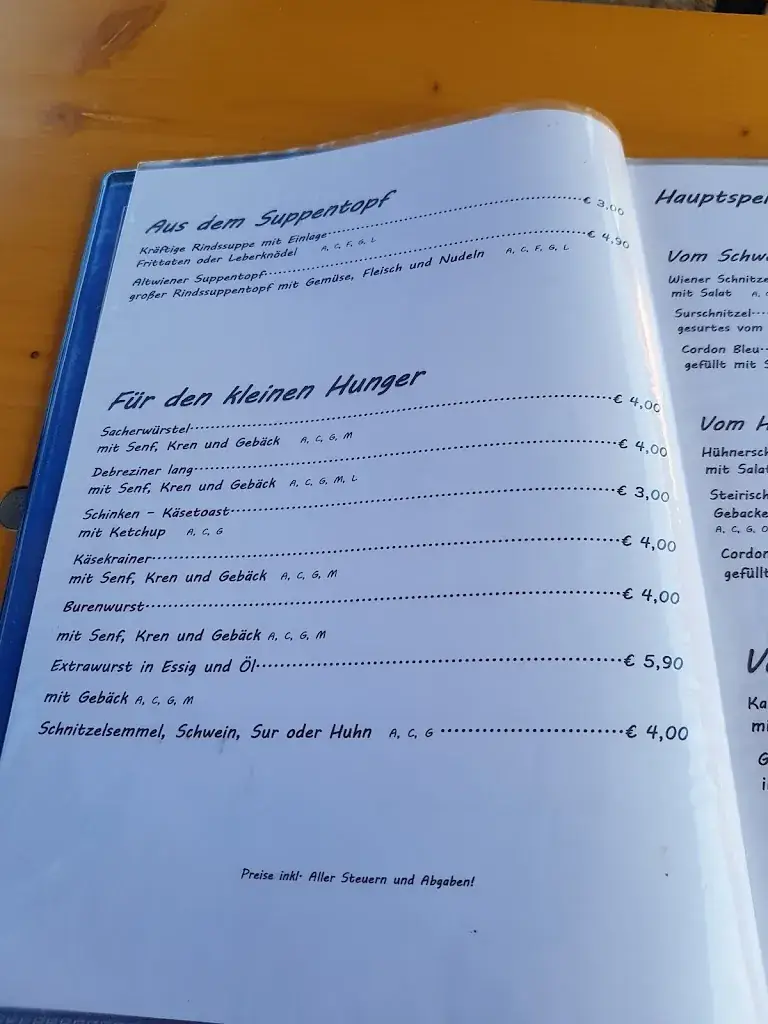 Aus dem Suppentopf
Kräftige Rindssuppe mit Einlage € 3,00
Frittaten oder Leberknödel A, C, F, G, L
Altwiener Suppentopf € 4,90
großer Rindssuppentopf mit Gemüse, Fleisch und Nudeln A, C, F, G, L
Für den kleinen Hunger
Sacherwürstel € 4,00
mit Senf, Kren und Gebäck A, C, G, M
Debreziner lang € 4,00
mit Senf, Kren und Gebäck A, C, G, M, L
Schinken - Käsetoast € 3,00
mit Ketchup A, C, G
Käsekrainer € 4,00
mit Senf, Kren und Gebäck A, C, G, M
Burenwurst € 4,00
mit Senf, Kren und Gebäck A, C, G, M
Extrawurst in Essig und Öl € 5,90
mit Gebäck A, C, G, M
Schnitzelsemmel, Schwein, Sur oder Huhn A, C, G € 4,00
Preise inkl. Aller Steuern und Abgaben!
Hauptspei
Vom Schw
Wiener Schnitze
mit Salat A,
Surschnitzel
gesurtes vom
Cordon Bleu
gefüllt mit S
Vom H
Hühnersch
mit Sala
Steirisch
Gebacke
A, C, G, O
Cordon
gefüllt
V
Ka
mi
G
i